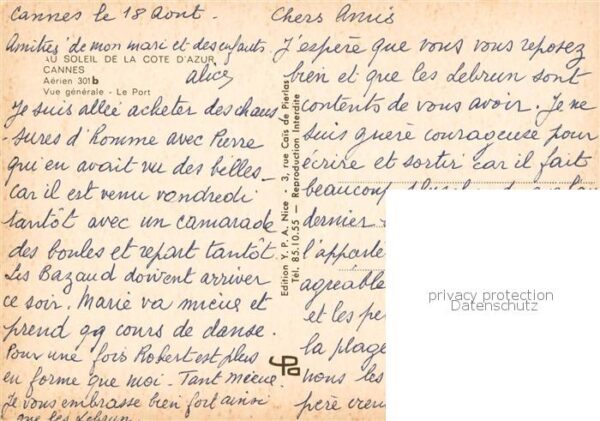 Cannes le 18 Aout.
Chers Amis
J'espère que vous vous reposez
bien et que les Lebrun sont
contents de vous avoir. Je ne
suis guère courageuse pour
écrire et sortir car il fait
beaucoup
dernier -
l'apporte
agréable
et les
la plage
nous les
père
Amitiés de mon mari et des enfants.
alice
AU SOLEIL DE LA COTE D'AZUR
CANNES
Aérien 301b
Vue générale - Le Port
Je suis allée acheter des chaus
-sures d'homme avec Pierre
qui en avait vu des belles -
car il est venu vendredi
tantôt avec un camarade
des boules et repart tantôt.
Les Bazaud doivent arriver
ce soir. Marie va mieux et
prend qq cours de danse.
Pour une fois Robert est plus
en forme que moi - Tant mieux.
Je vous embrasse bien fort ainsi
que les Lebrun
Edition Y. P. A. Nice - 3, rue Caïs de Pierlas
Tél. 85.10.55 - Reproduction Interdite
privacy protection
Datenschutz